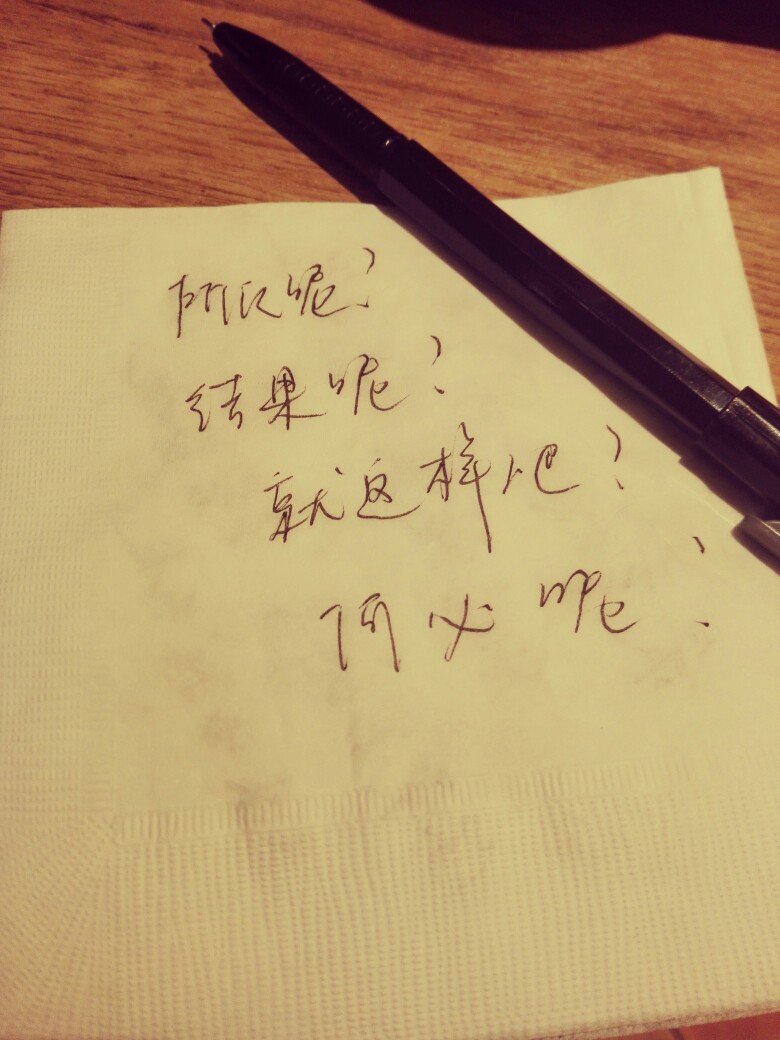 所以呢?
结果呢?
就这样吧?
何必呢?